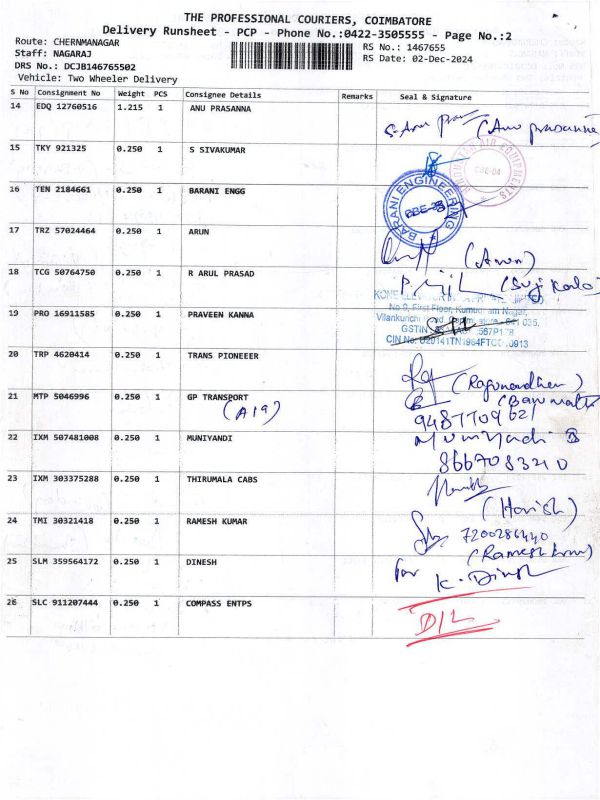 THE PROFESSIONAL COURIERS, COIMBATORE
Delivery Runsheet - PCP - Phone No.:0422-3505555 - Page No.:2
Route: CHERNMANAGAR
Staff: NAGARAJ
DRS No.: DCJB146765502
Vehicle: Two Wheeler Delivery
RS No.: 1467655
RS Date: 02-Dec-2024
S No Consignment No Weight PCS Consignee Details Remarks Seal & Signature
14 EDQ 12760516 1.215 1 ANU PRASANNA
(Anu prasanna)
15 TKY 921325 0.250 1 S SIVAKUMAR
AIR EQUIPMENTS
CBE-04
16 TEN 2184661 0.250 1 BARANI ENGG
BARANI ENGINEERING
17 TRZ 57024464 0.250 1 ARUN
(Arun)
18 TCG 50764750 0.250 1 R ARUL PRASAD
19 PRO 16911585 0.250 1 PRAVEEN KANNA
KONE ELEVATOR
No.9, First Floor, Kumudham Nagar,
Vilankurichi
641 035.
GSTIN
CIN No.
20 TRP 4620414 0.250 1 TRANS PIONEEER
(Ragunandhan)
21 MTP 5046996 0.250 1 GP TRANSPORT
(A19)
9487709621
22 IXM 507481008 0.250 1 MUNIYANDI
Muniyandi
8667083210
23 IXM 303375288 0.250 1 THIRUMALA CABS
(Harish)
24 TMI 30321418 0.250 1 RAMESH KUMAR
7200286440
(Ramesh kumar)
25 SLM 359564172 0.250 1 DINESH
for K. Dinesh
26 SLC 911207444 0.250 1 COMPASS ENTPS
D/L